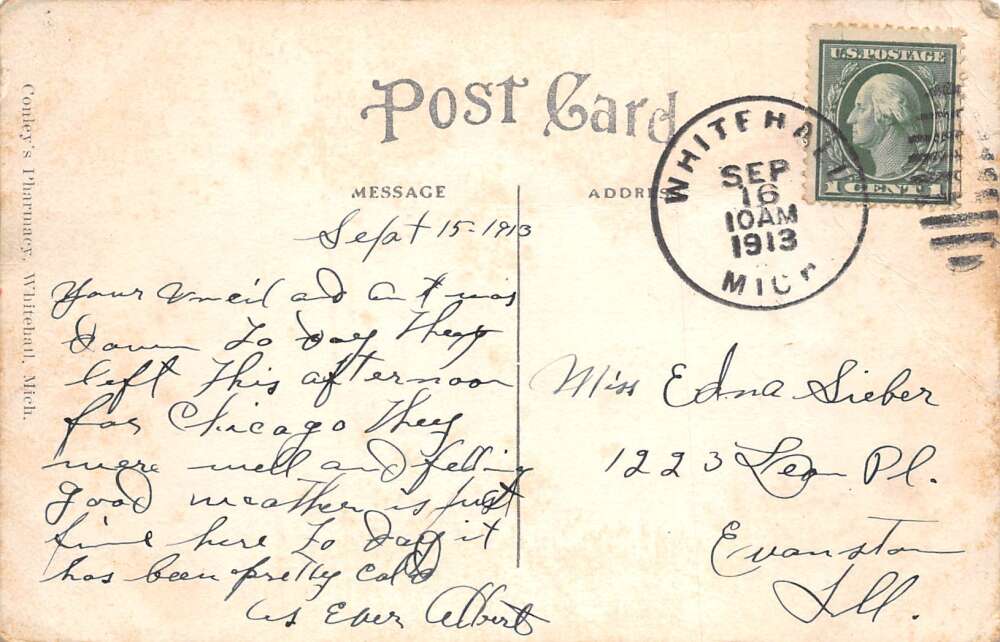 Post Card
MESSAGE
ADDRES
U.S. POSTAGE
1 CENT 1
WHITEHALL
SEP
16
10AM
1913
MICH
Conley's Pharmacy, Whitehall, Mich.
Sept 15-1913
Your Uncil and Ant was
down to day They
left This afternoon
for Chicago They
were well and felling
good weather is just
fine here to day it
has been pretty cold
as Ever Albert
Miss Edna Sieber
1223 Leon Pl.
Evanston
Ill.